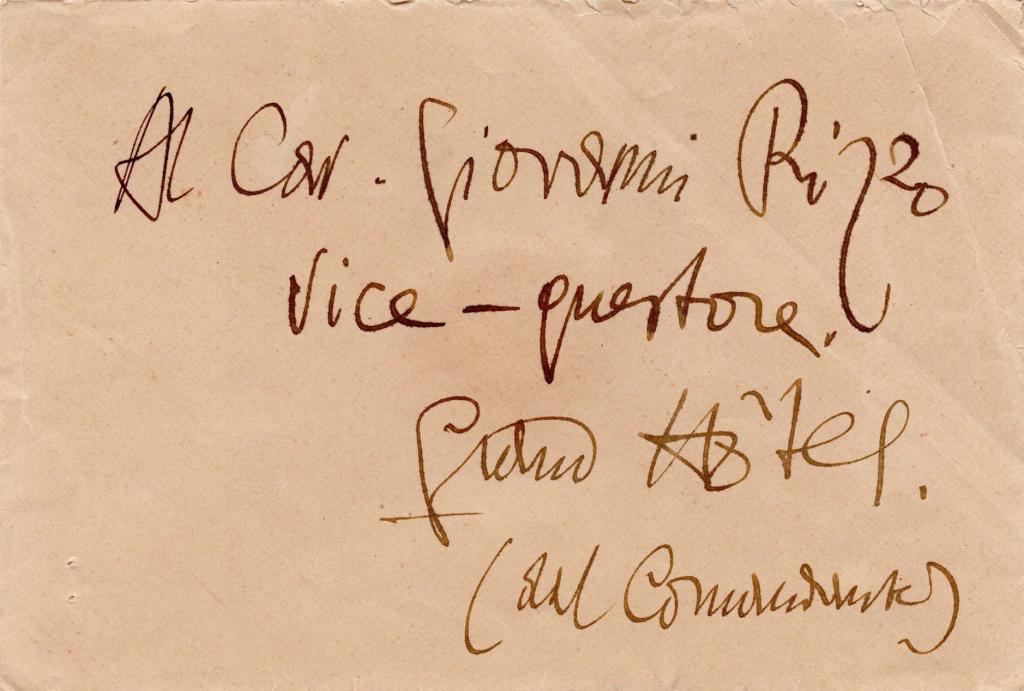 Al Cav. Giovanni Rizzo
Vice-questore.
Grand Hôtel.
(dal Comandante)